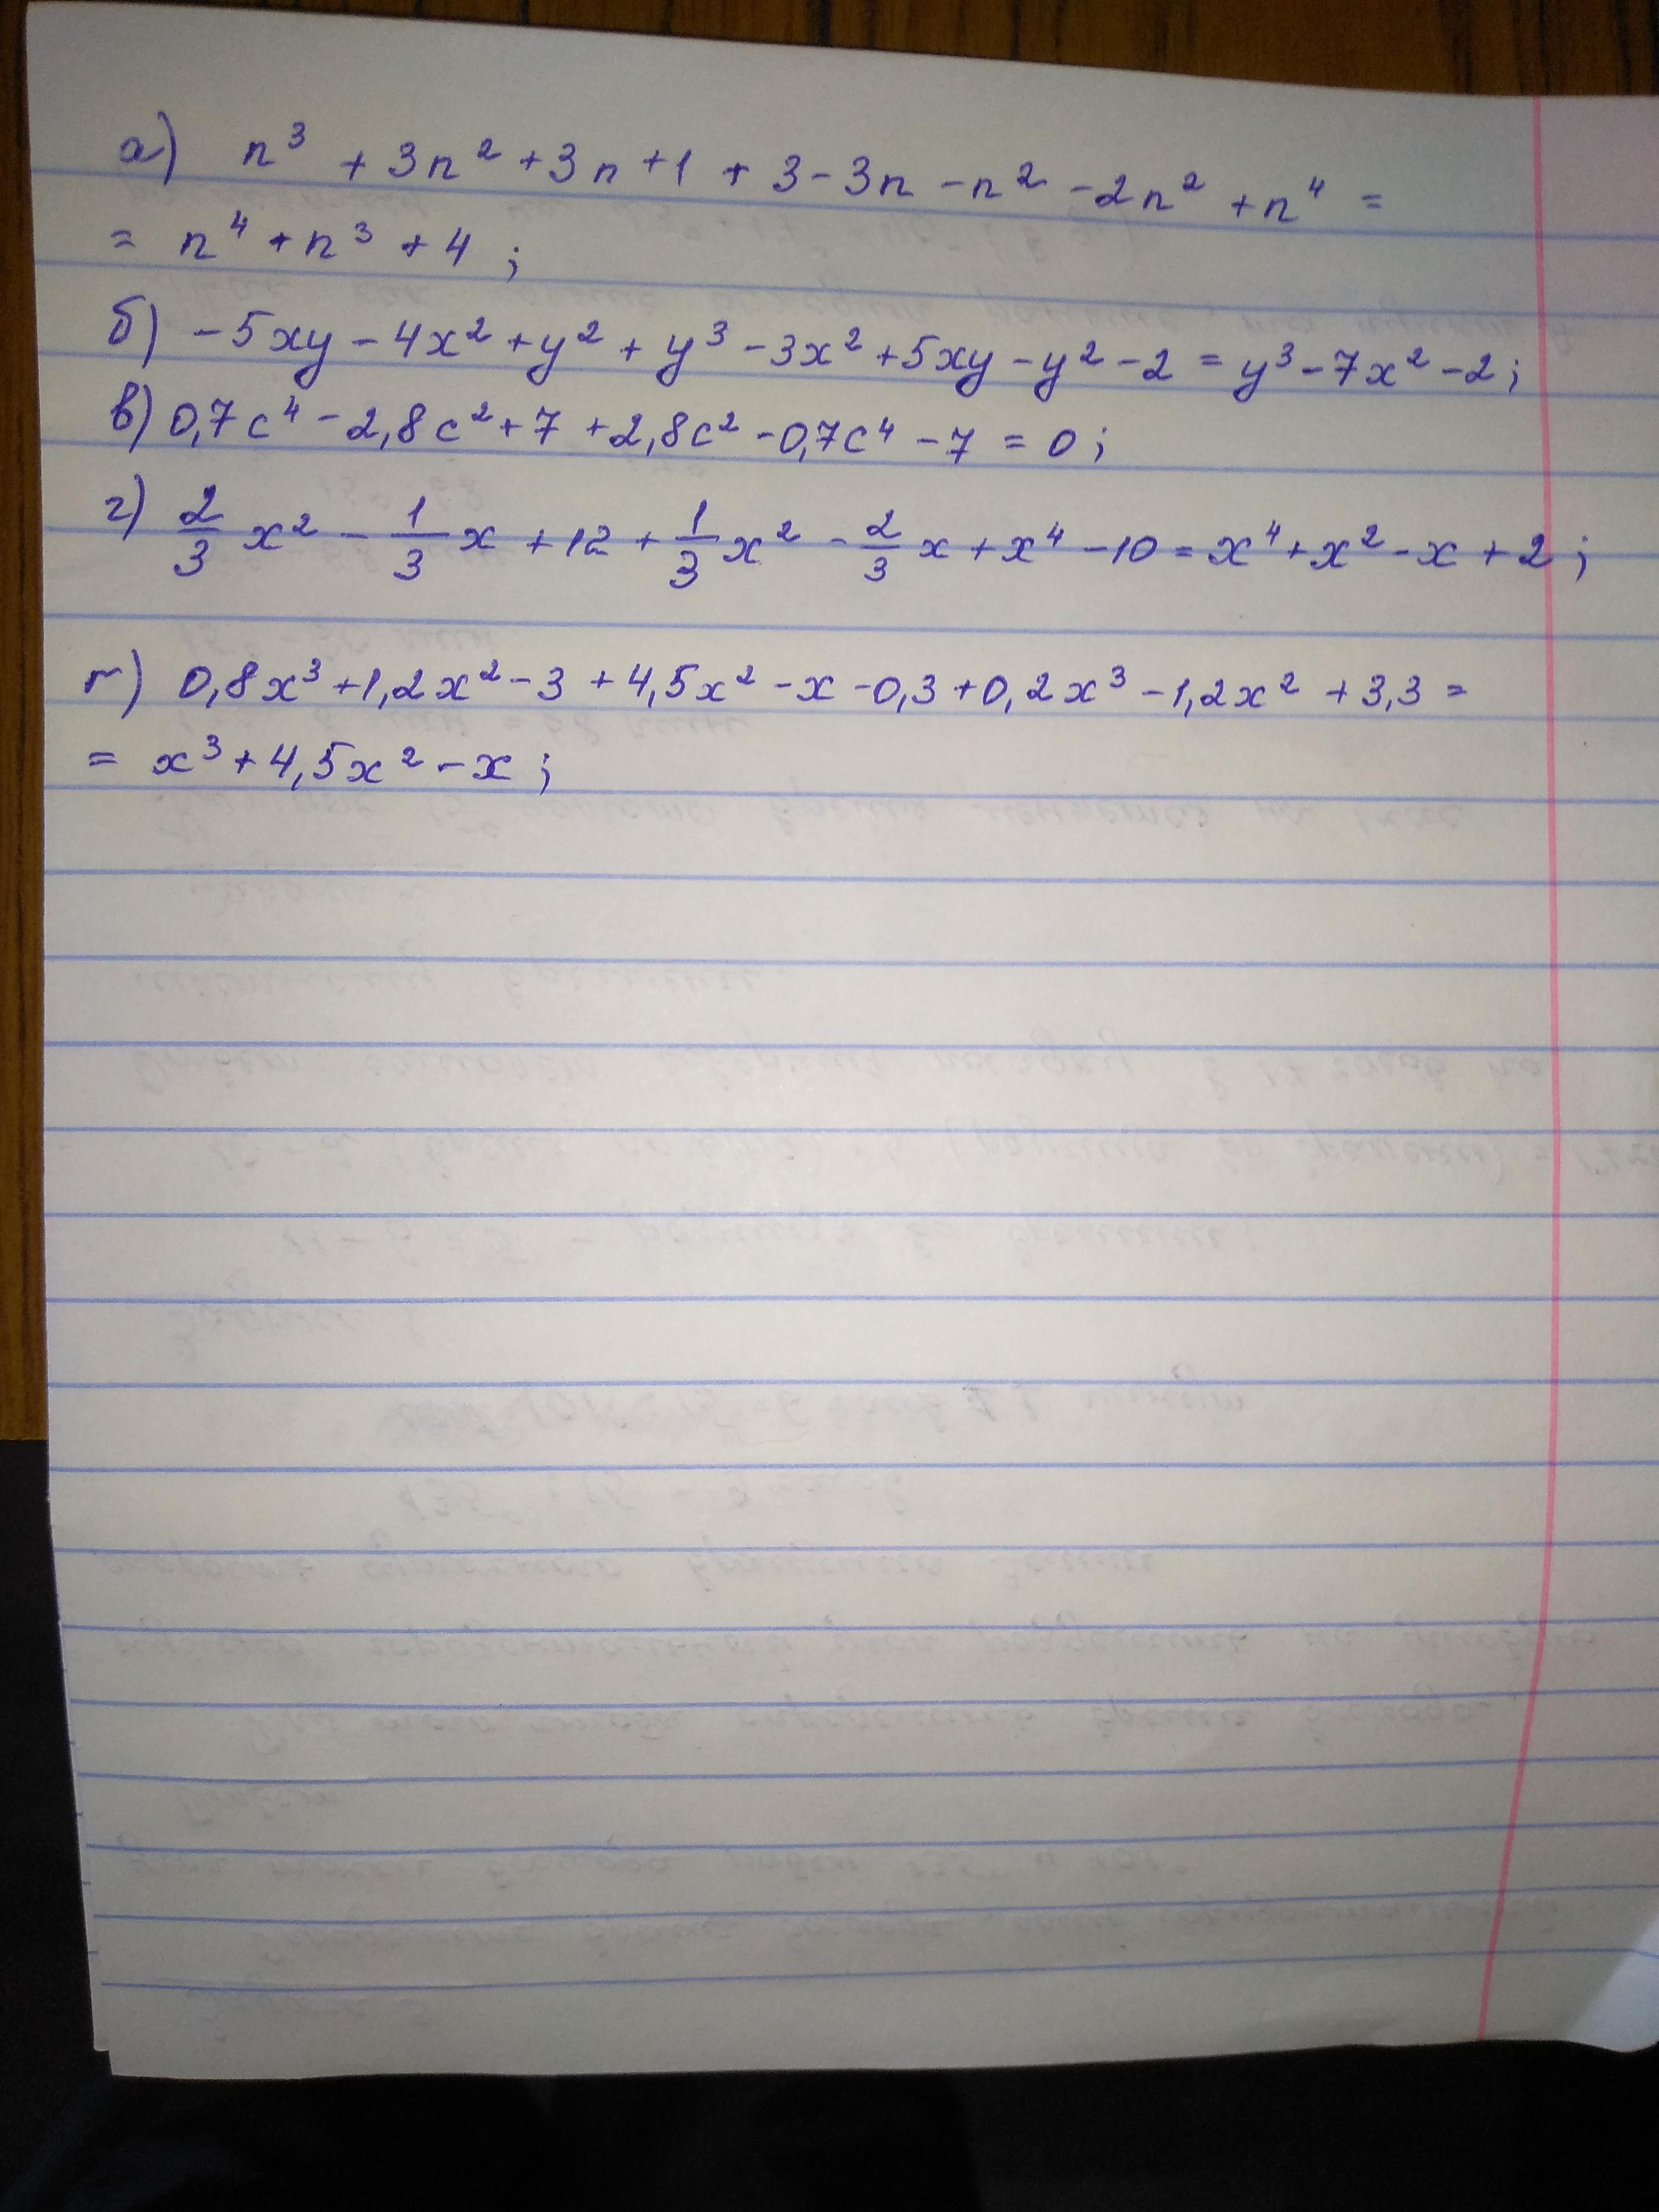 а) n³ + 3n² + 3n + 1 + 3 - 3n - n² - 2n² + n⁴ =
= n⁴ + n³ + 4 ;
б) -5xy - 4x² + y² + y³ - 3x² + 5xy - y² - 2 = y³ - 7x² - 2 ;
в) 0,7c⁴ - 2,8c² + 7 + 2,8c² - 0,7c⁴ - 7 = 0 ;
г) 2/3 x² - 1/3 x + 12 + 1/3 x² - 2/3 x + x⁴ - 10 = x⁴ + x² - x + 2 ;
г) 0,8x³ + 1,2x² - 3 + 4,5x² - x - 0,3 + 0,2x³ - 1,2x² + 3,3 =
= x³ + 4,5x² - x ;